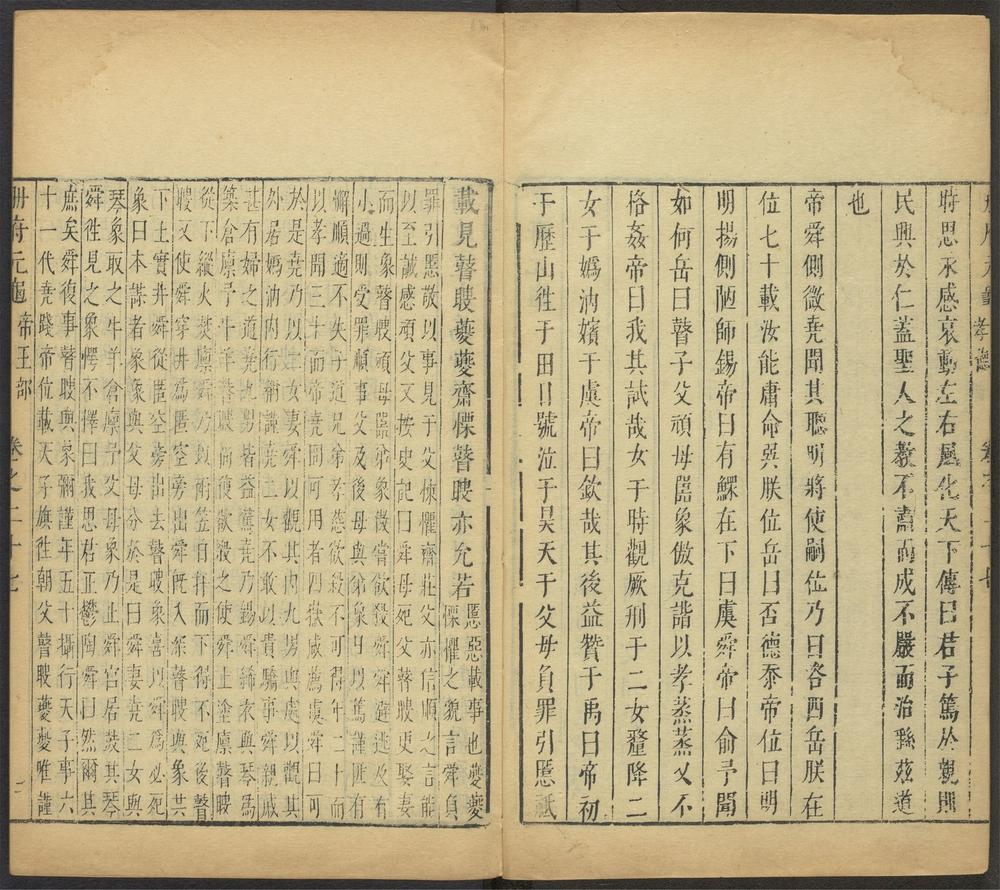 冊府元龜 孝德 卷之二十七
時思永感哀動左右風化天下傳曰君子篤於親則
民興於仁蓋聖人之教不肅而成不嚴而治繇茲道
也
帝舜側微堯聞其聰明將使嗣位乃曰咨四岳朕在
位七十載汝能庸命巽朕位岳曰否德忝帝位曰明
明揚側陋師錫帝曰有鰥在下曰虞舜帝曰俞予聞
如何岳曰瞽子父頑母嚚象傲克諧以孝蒸蒸乂不
格姦帝曰我其試哉女于時觀厥刑于二女釐降二
女于嬀汭嬪于虞帝曰欽哉其後益贊于禹曰帝初
于歷山往于田日號泣于旻天于父母負罪引慝祗
載見瞽瞍夔夔齋慄瞽瞍亦允若慝惡載事也夔夔
慄懼之貌言舜負
罪引惡敬以事見于父悚懼齋莊父亦信順之言能
以至誠感頑父又按史記曰舜母死父瞽瞍更娶妻
而生象瞽瞍頑母嚚弟象傲嘗欲殺舜舜避逃及有
小過則受罪順事父及後母與弟象日以篤謹匪有
懈順適不失子道兄弟孝慈欲殺不可得年二十而
以孝聞三十而帝堯問可用者四嶽咸薦虞舜曰可
於是堯乃以二女妻舜以觀其內九男與處以觀其
外居嬀汭內行彌謹堯二女不敢以貴驕事舜親戚
甚有婦之道堯九男皆益篤堯乃錫舜絺衣與琴為
築倉廩予牛羊瞽瞍尚復欲殺之使舜上塗廩瞽瞍
從下縱火焚廩舜乃以兩笠自扞而下得不死後瞽
瞍又使舜穿井為匿空旁出舜旣入深瞽瞍與象共
下土實井舜從匿空旁出去瞽瞍象喜以舜為必死
象曰本謀者象象與父母分於是曰舜妻堯二女與
琴象取之牛羊倉廩予父母象乃止舜宮居鼓其琴
舜往見之象愕不擇曰我思君正鬱陶舜曰然爾其
庶矣舜復事瞽瞍與象彌謹年五十攝行天子事六
十一代堯踐帝位載天子旗往朝父瞽瞍夔夔唯謹
冊府元龜 帝王部 卷之二十七 二